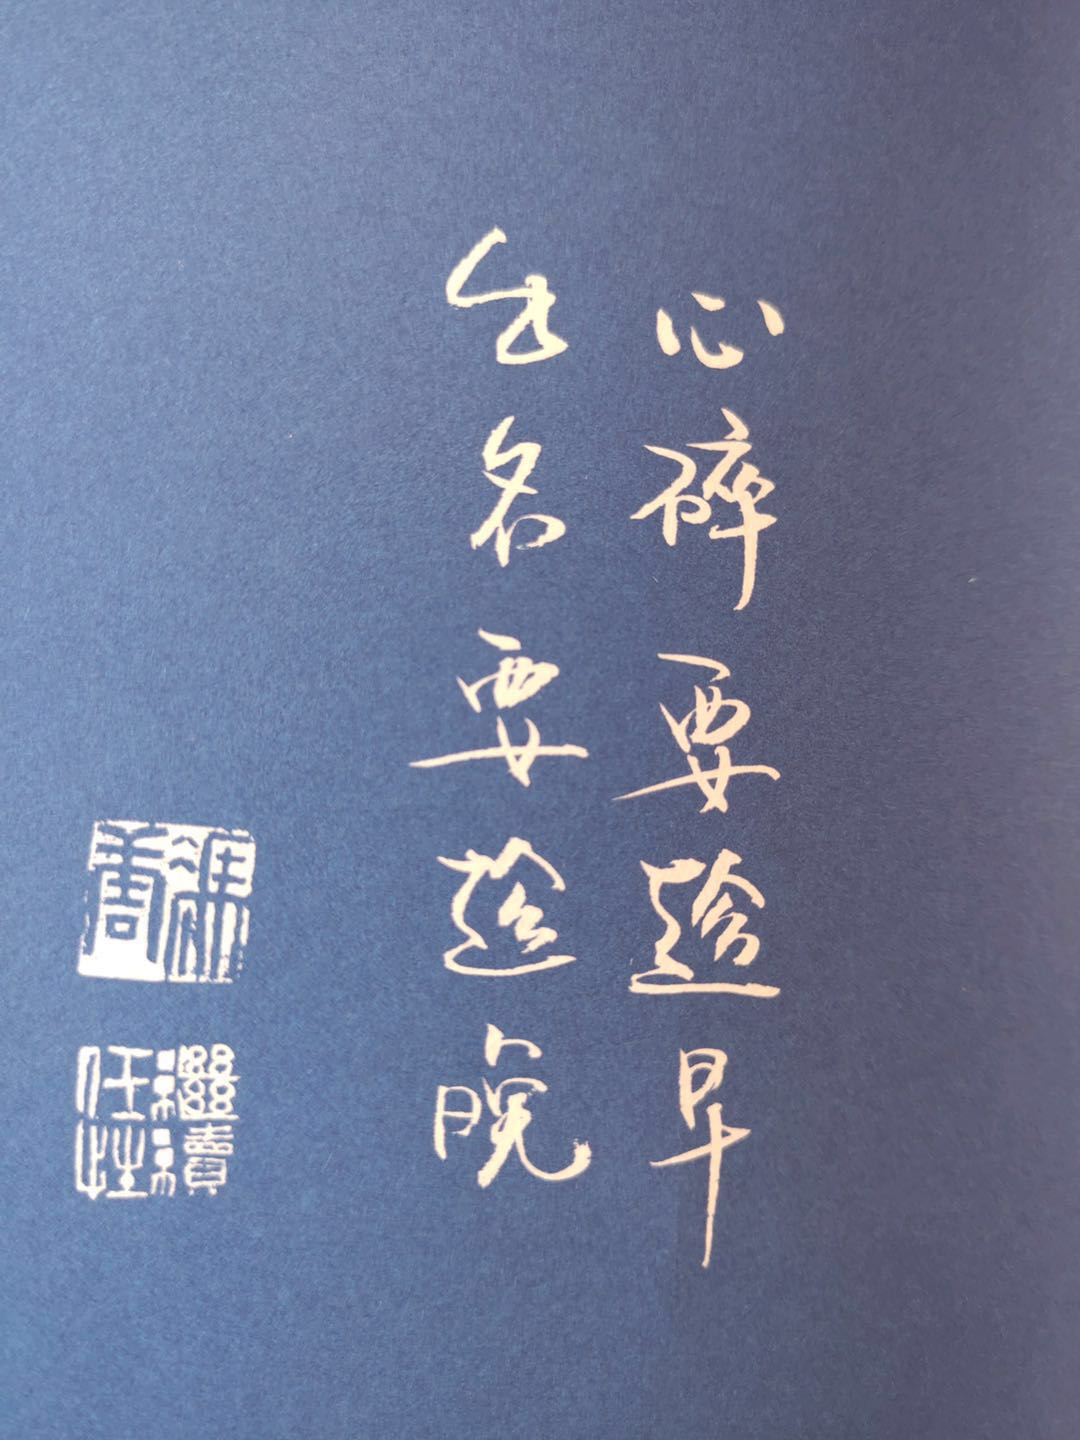 心碎要趁早
出名要趁晚
馮唐
繼續
任性